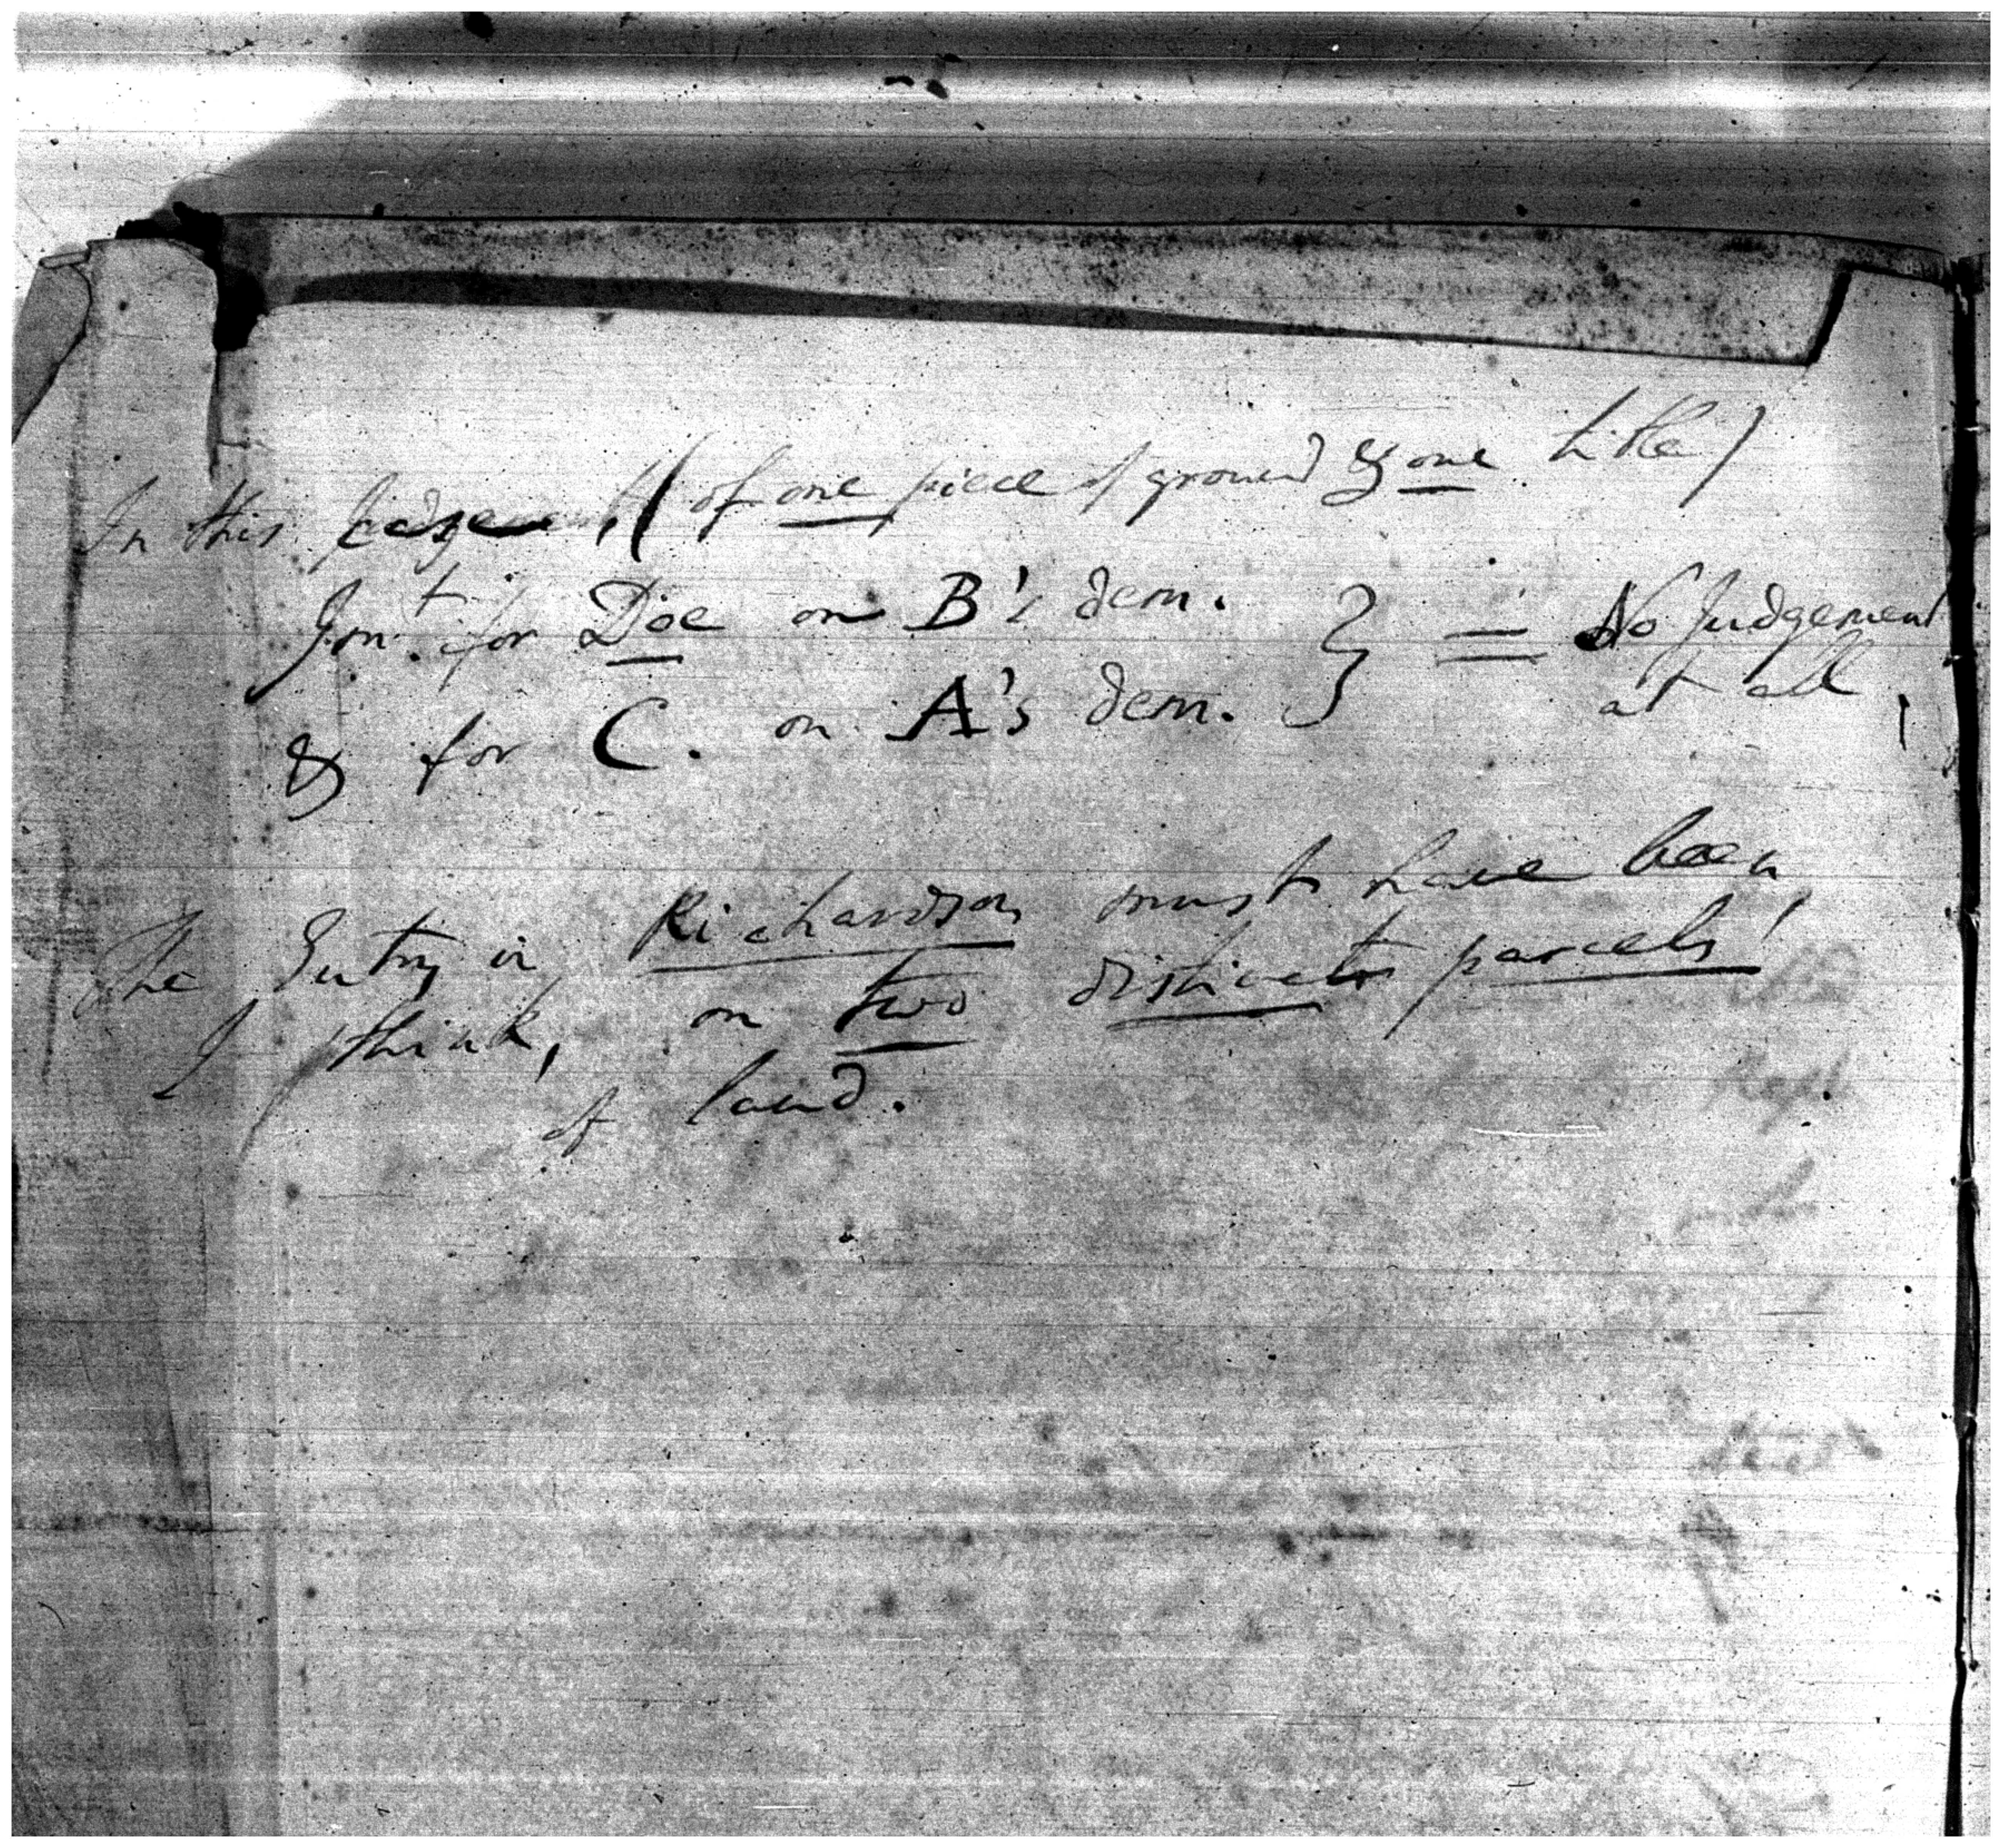 In this case ( of one piece of ground & one title )
Jm.t for Doe on B's dem. } = No Judgement
& for C. on A's dem. at all,
The Entry in Richardson must have been,
I think, on two distinct parcels
of land.